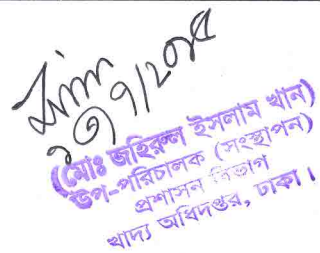 ১৩/৭/২০২৫
(মোঃ জহিরুল ইসলাম খান)
উপ-পরিচালক (সংস্থাপন)
প্রশাসন বিভাগ
খাদ্য অধিদপ্তর, ঢাকা।